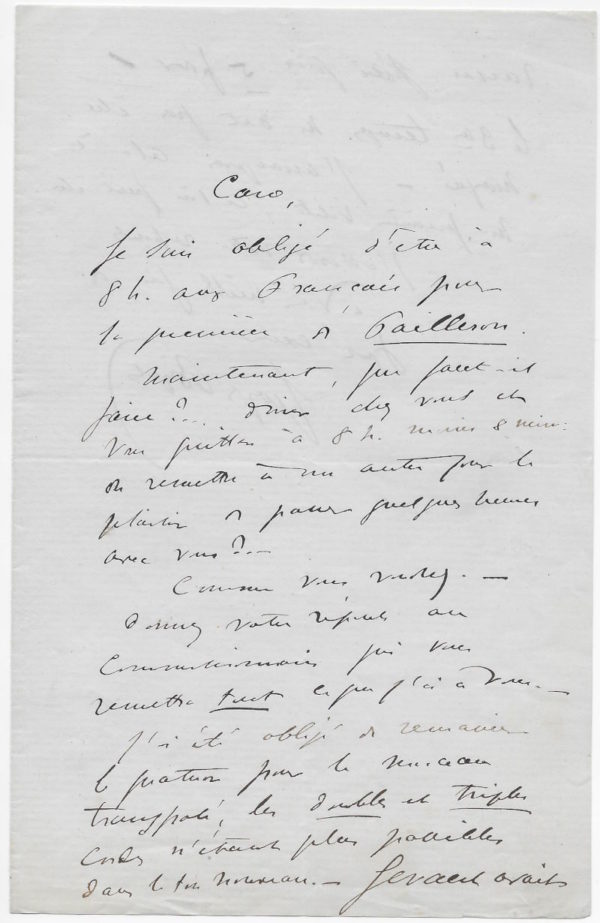 Caro,
Je suis obligé d'être à
8 h. aux Français pour
la première de Pailleron.
Maintenant, que faut-il
faire?... diner chez vous et
vous quitter à 8 h. moins 8 min.
ou remettre à un autre jour le
plaisir de passer quelques heures
avec vous?..
Comme vous voudrez. —
Donnez votre réponse au
Commissionnaire qui vous
remettra tout ce que j'ai à vous. —
J'ai été obligé de remanier
le quatuor pour le morceau
transposé, les doubles et triples
cordes n'étant plus possibles
dans le ton nouveau. — Gevaert avait